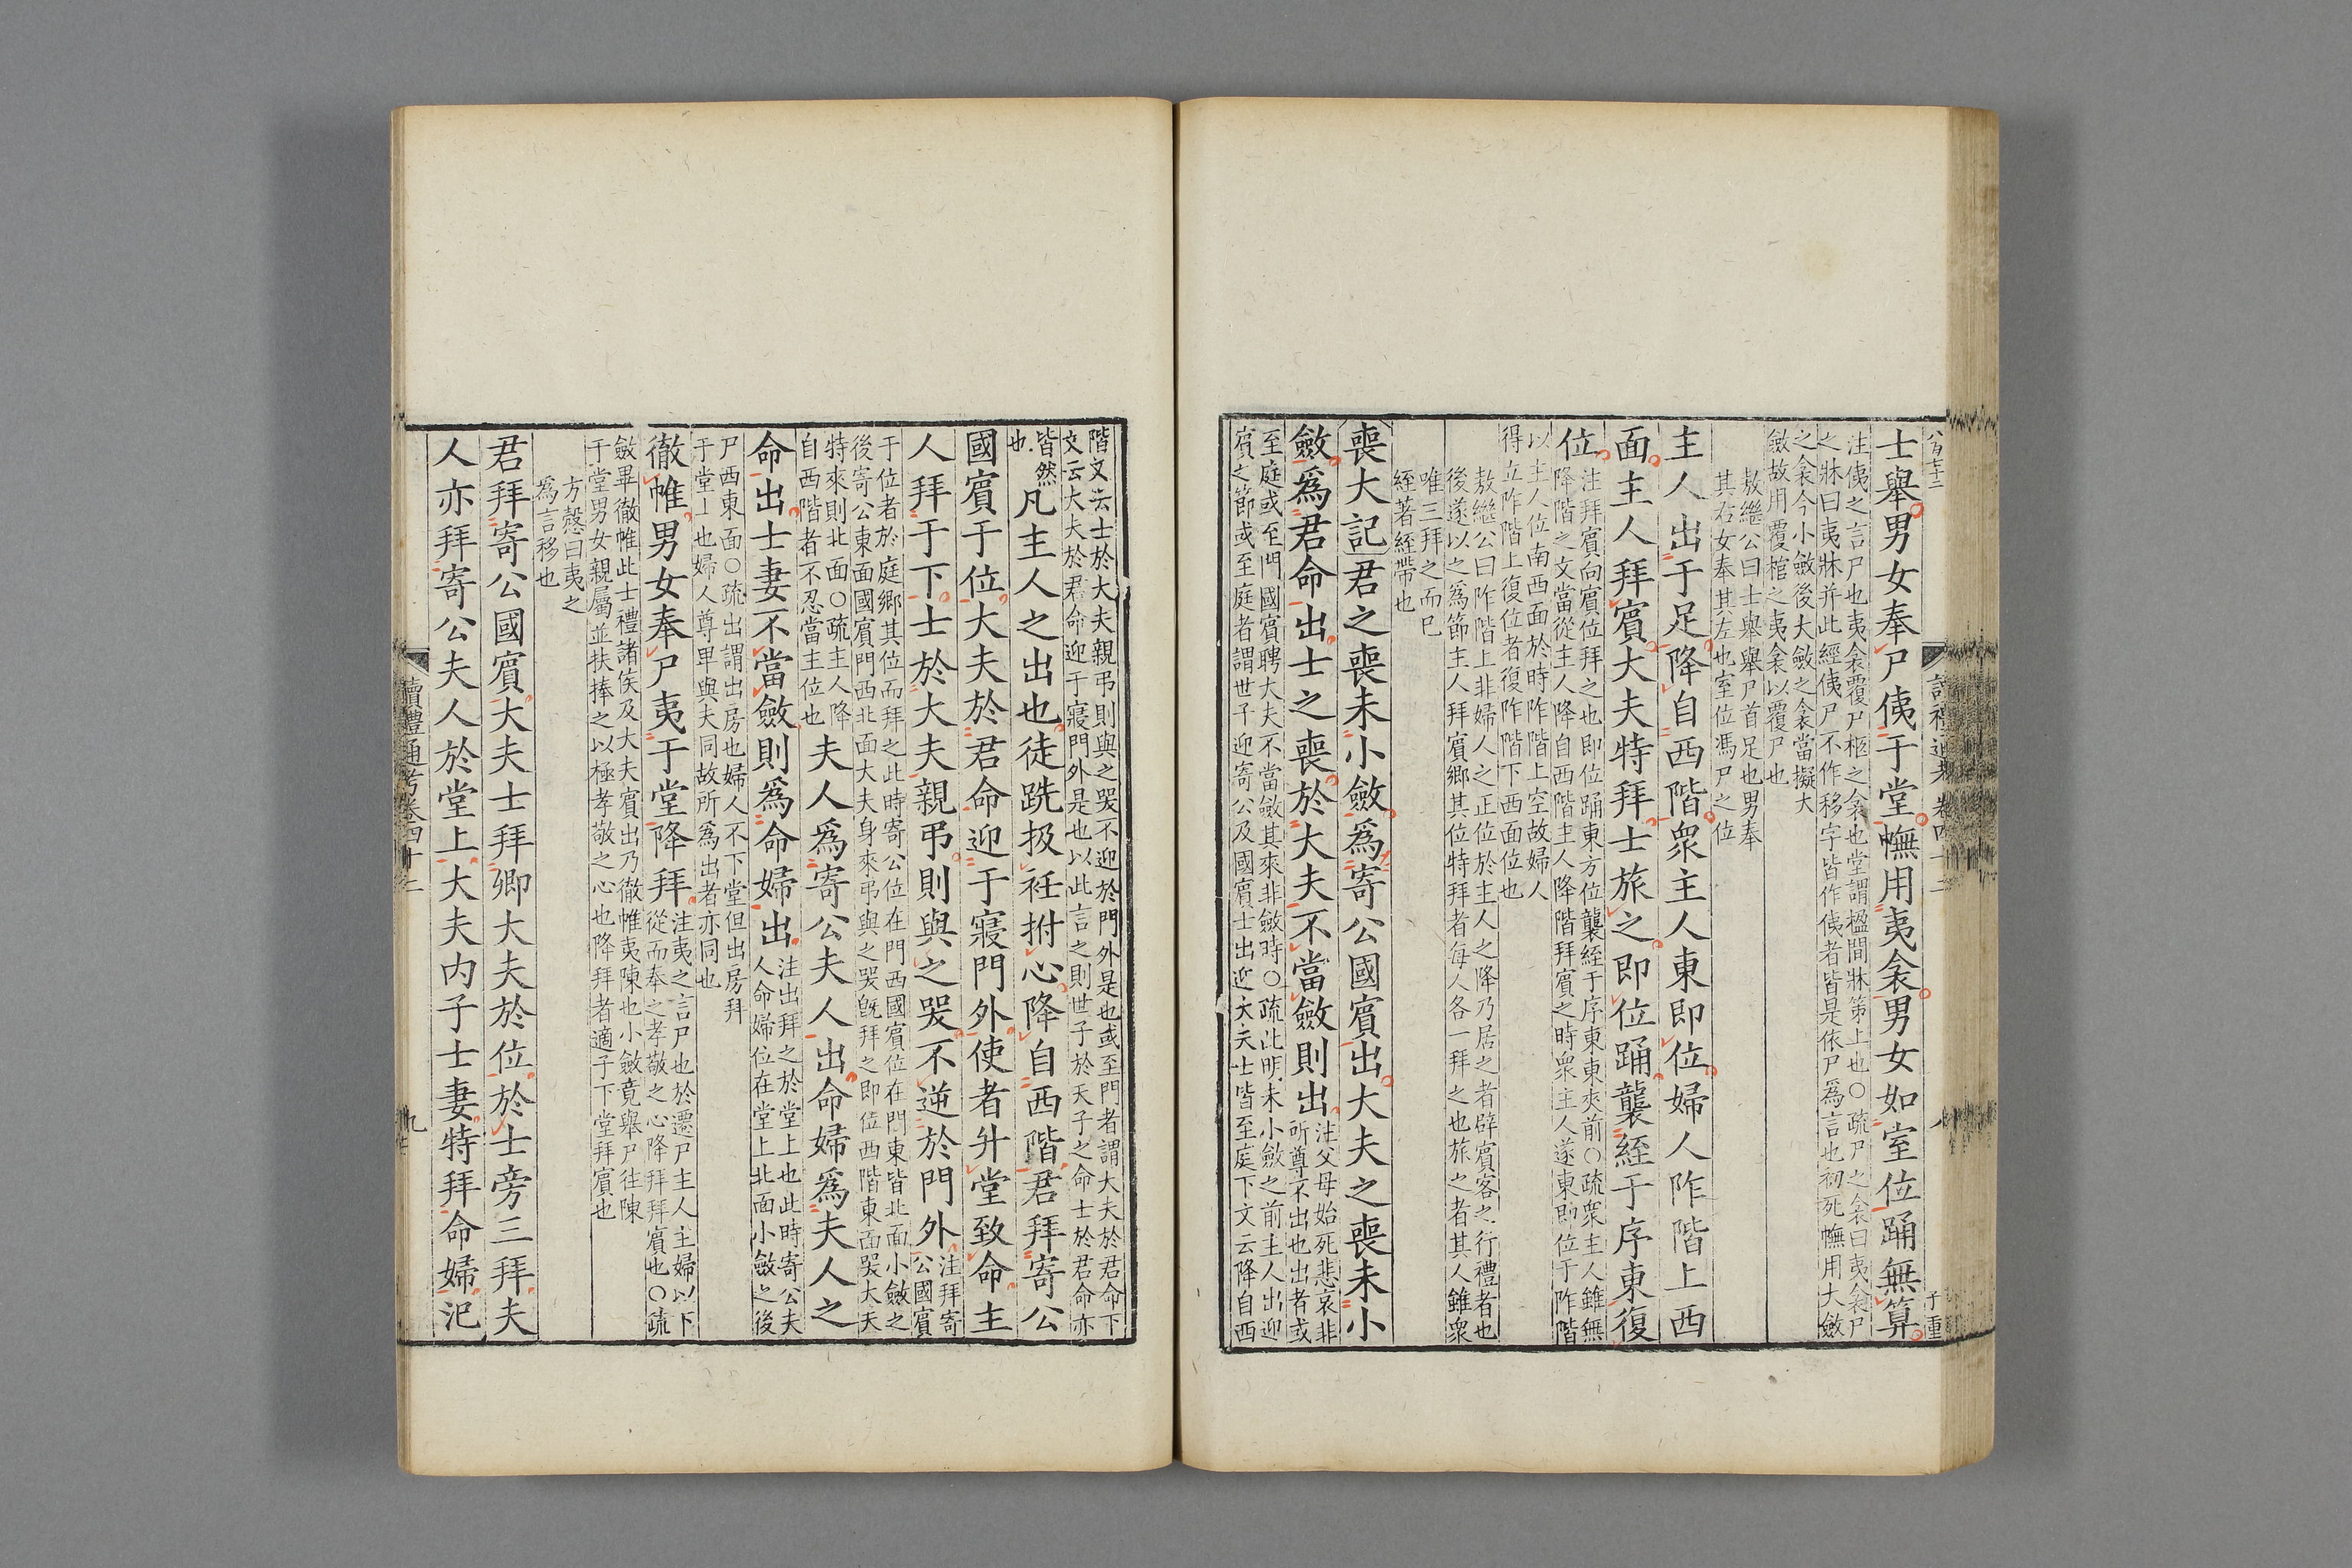 士舉男女奉尸侇于堂幠用夷衾男女如室位踊無算
注侇之言尸也夷衾覆尸柩之衾也堂謂楹間牀第上也○疏尸之衾曰夷衾尸
之牀曰夷牀并此經侇尸不作移字皆作侇者皆是依尸爲言也初死幠用大斂
之衾今小斂後大斂之衾當擬大
斂故用覆棺之夷衾以覆尸也
敖繼公曰士舉舉尸首足也男奉
其右女奉其左也室位馮尸之位
主人出于足降自西階衆主人東即位婦人阼階上西
面主人拜賓大夫特拜士旅之即位踊襲絰于序東復
位
注拜賓向賓位拜之也即位踊東方位襲絰于序東東夾前○疏衆主人雖無
降階之文當從主人降自西階主人降階拜賓之時衆主人遂東即位于阼階
以主人位南西面於時阼階上空故婦人
得立阼階上復位者復阼階下西面位也
敖繼公曰阼階上非婦人之正位於主人之降乃居之者辟賓客之行禮者也
後遂以之爲節主人拜賓鄉其位特拜者每人各一拜之也旅之者其人雖衆
唯三拜之而已
絰著絰帶也
喪大記君之喪未小斂爲寄公國賓出大夫之喪未小
斂爲君命出士之喪於大夫不當斂則出
注父母始死悲哀非
所尊不出也出者或
至庭或至門國賓聘大夫不當斂其來非斂時○疏此明未小斂之前主人出迎
賓之節或至庭者謂世子迎寄公及國賓士出迎大夫士皆至庭下文云降自西
階文云士於大夫親弔則與之哭不迎於門外是也或至門者謂大夫於君命下
文云大夫於君命迎于寢門外是也以此言之則世子於天子之命士於君命亦
皆然
也
凡主人之出也徒跣扱衽拊心降自西階君拜寄公
國賓于位大夫於君命迎于寢門外使者升堂致命主
人拜于下士於大夫親弔則與之哭不逆於門外
注拜寄
公國賓
于位者於庭鄉其位而拜之此時寄公位在門西國賓位在門東皆北面小斂之
後寄公東面國賓門西北面大夫身來弔與之哭旣拜之即位西階東面哭大夫
特來則北面○疏主人降
自西階者不忍當主位也
夫人爲寄公夫人出命婦爲夫人之
命出士妻不當斂則爲命婦出
注出拜之於堂上也此時寄公夫
人命婦位在堂上北面小斂之後
尸西東面○疏出謂出房也婦人不下堂但出房拜
于堂上也婦人尊卑與夫同故所爲出者亦同也
徹帷男女奉尸夷于堂降拜
注夷之言尸也於遷尸主人主婦以下
從而奉之孝敬之心降拜拜賓也○疏
斂畢徹帷此士禮諸侯及大夫賓出乃徹帷夷陳也小斂竟舉尸往陳
于堂男女親屬並扶捧之以極孝敬之心也降拜者適子下堂拜賓也
方慤曰夷之
爲言移也
君拜寄公國賓大夫士拜卿大夫於位於士旁三拜夫
人亦拜寄公夫人於堂上大夫內子士妻特拜命婦汜
讀禮通考卷四十二
九